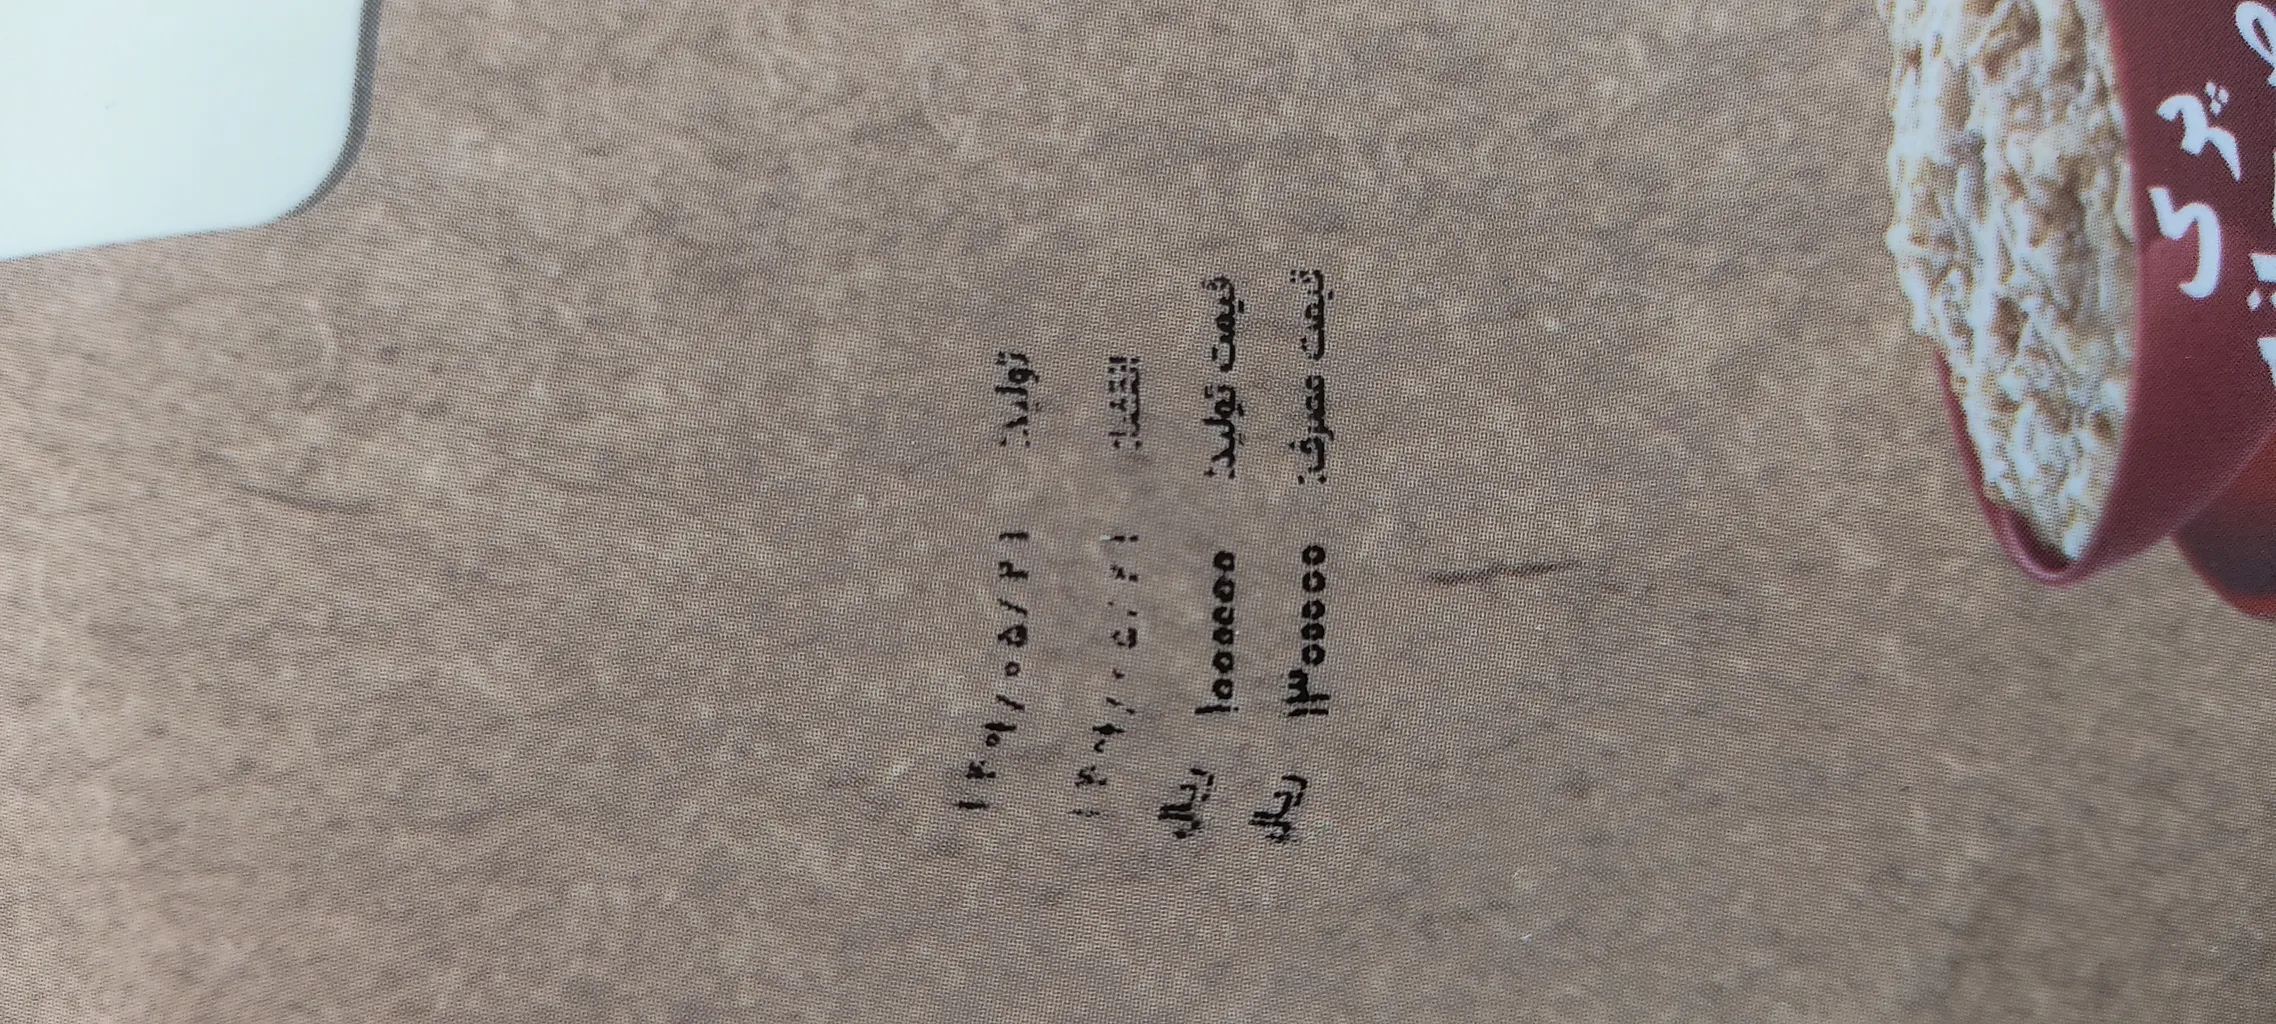 تولید: ۱۴۰۱/۰۵/۲۱
انقضا: ۱۴۰۲/۰۵/۲۱
قیمت تولید: ۱۰۰۰۰۰۰ ریال
قیمت مصرف: ۱۳۰۰۰۰۰ ریال
پرک